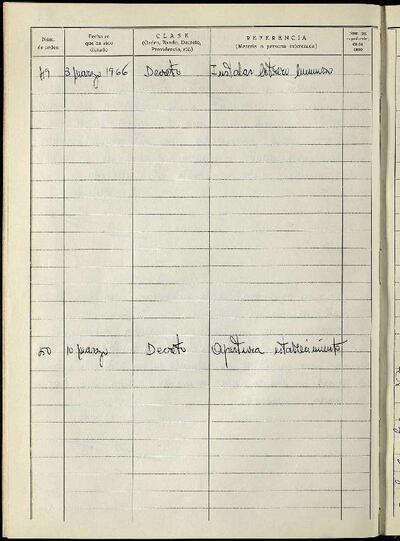 Núm. de orden
Fecha en que ha sido dictado
CLASE
(Orden, Bando, Decreto, Providencia, etc.)
REFERENCIA
(Materia o persona interesada)
49 3 marzo 1966 Decreto Instalar letrero luminoso
50 10 marzo Decreto Apertura establecimiento